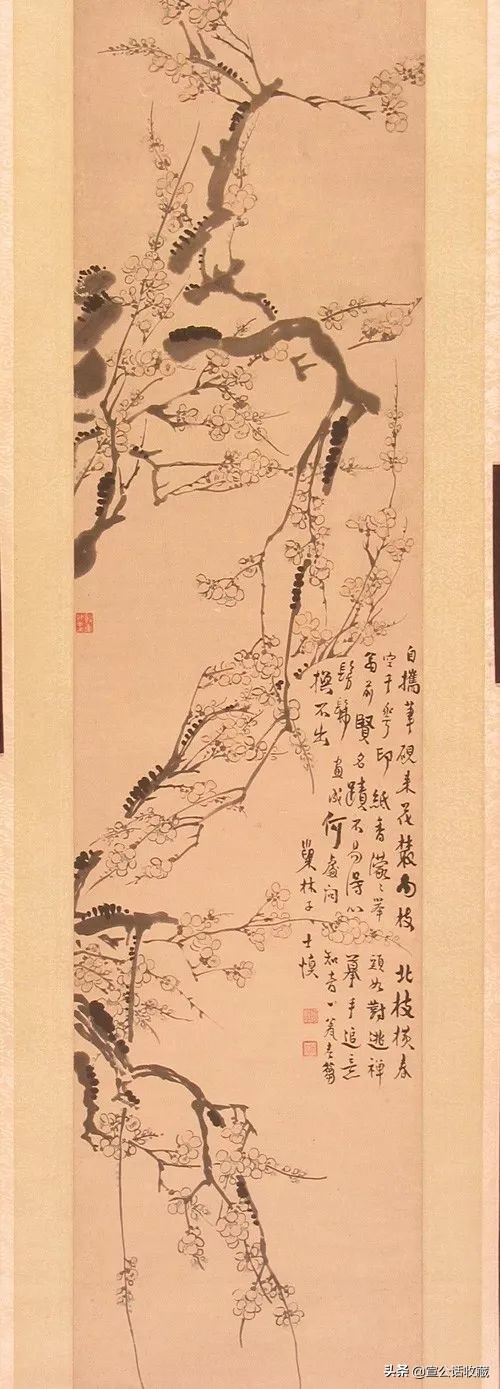 自攜筆硯來花叢南枝北枝橫春
空千花印紙香濛々舉頭如對逃禪
翁前賢名蹟不易得心摹手追意
髣髴畫成何處問知音
不出
巢林子士慎
头条 @宣公话收藏